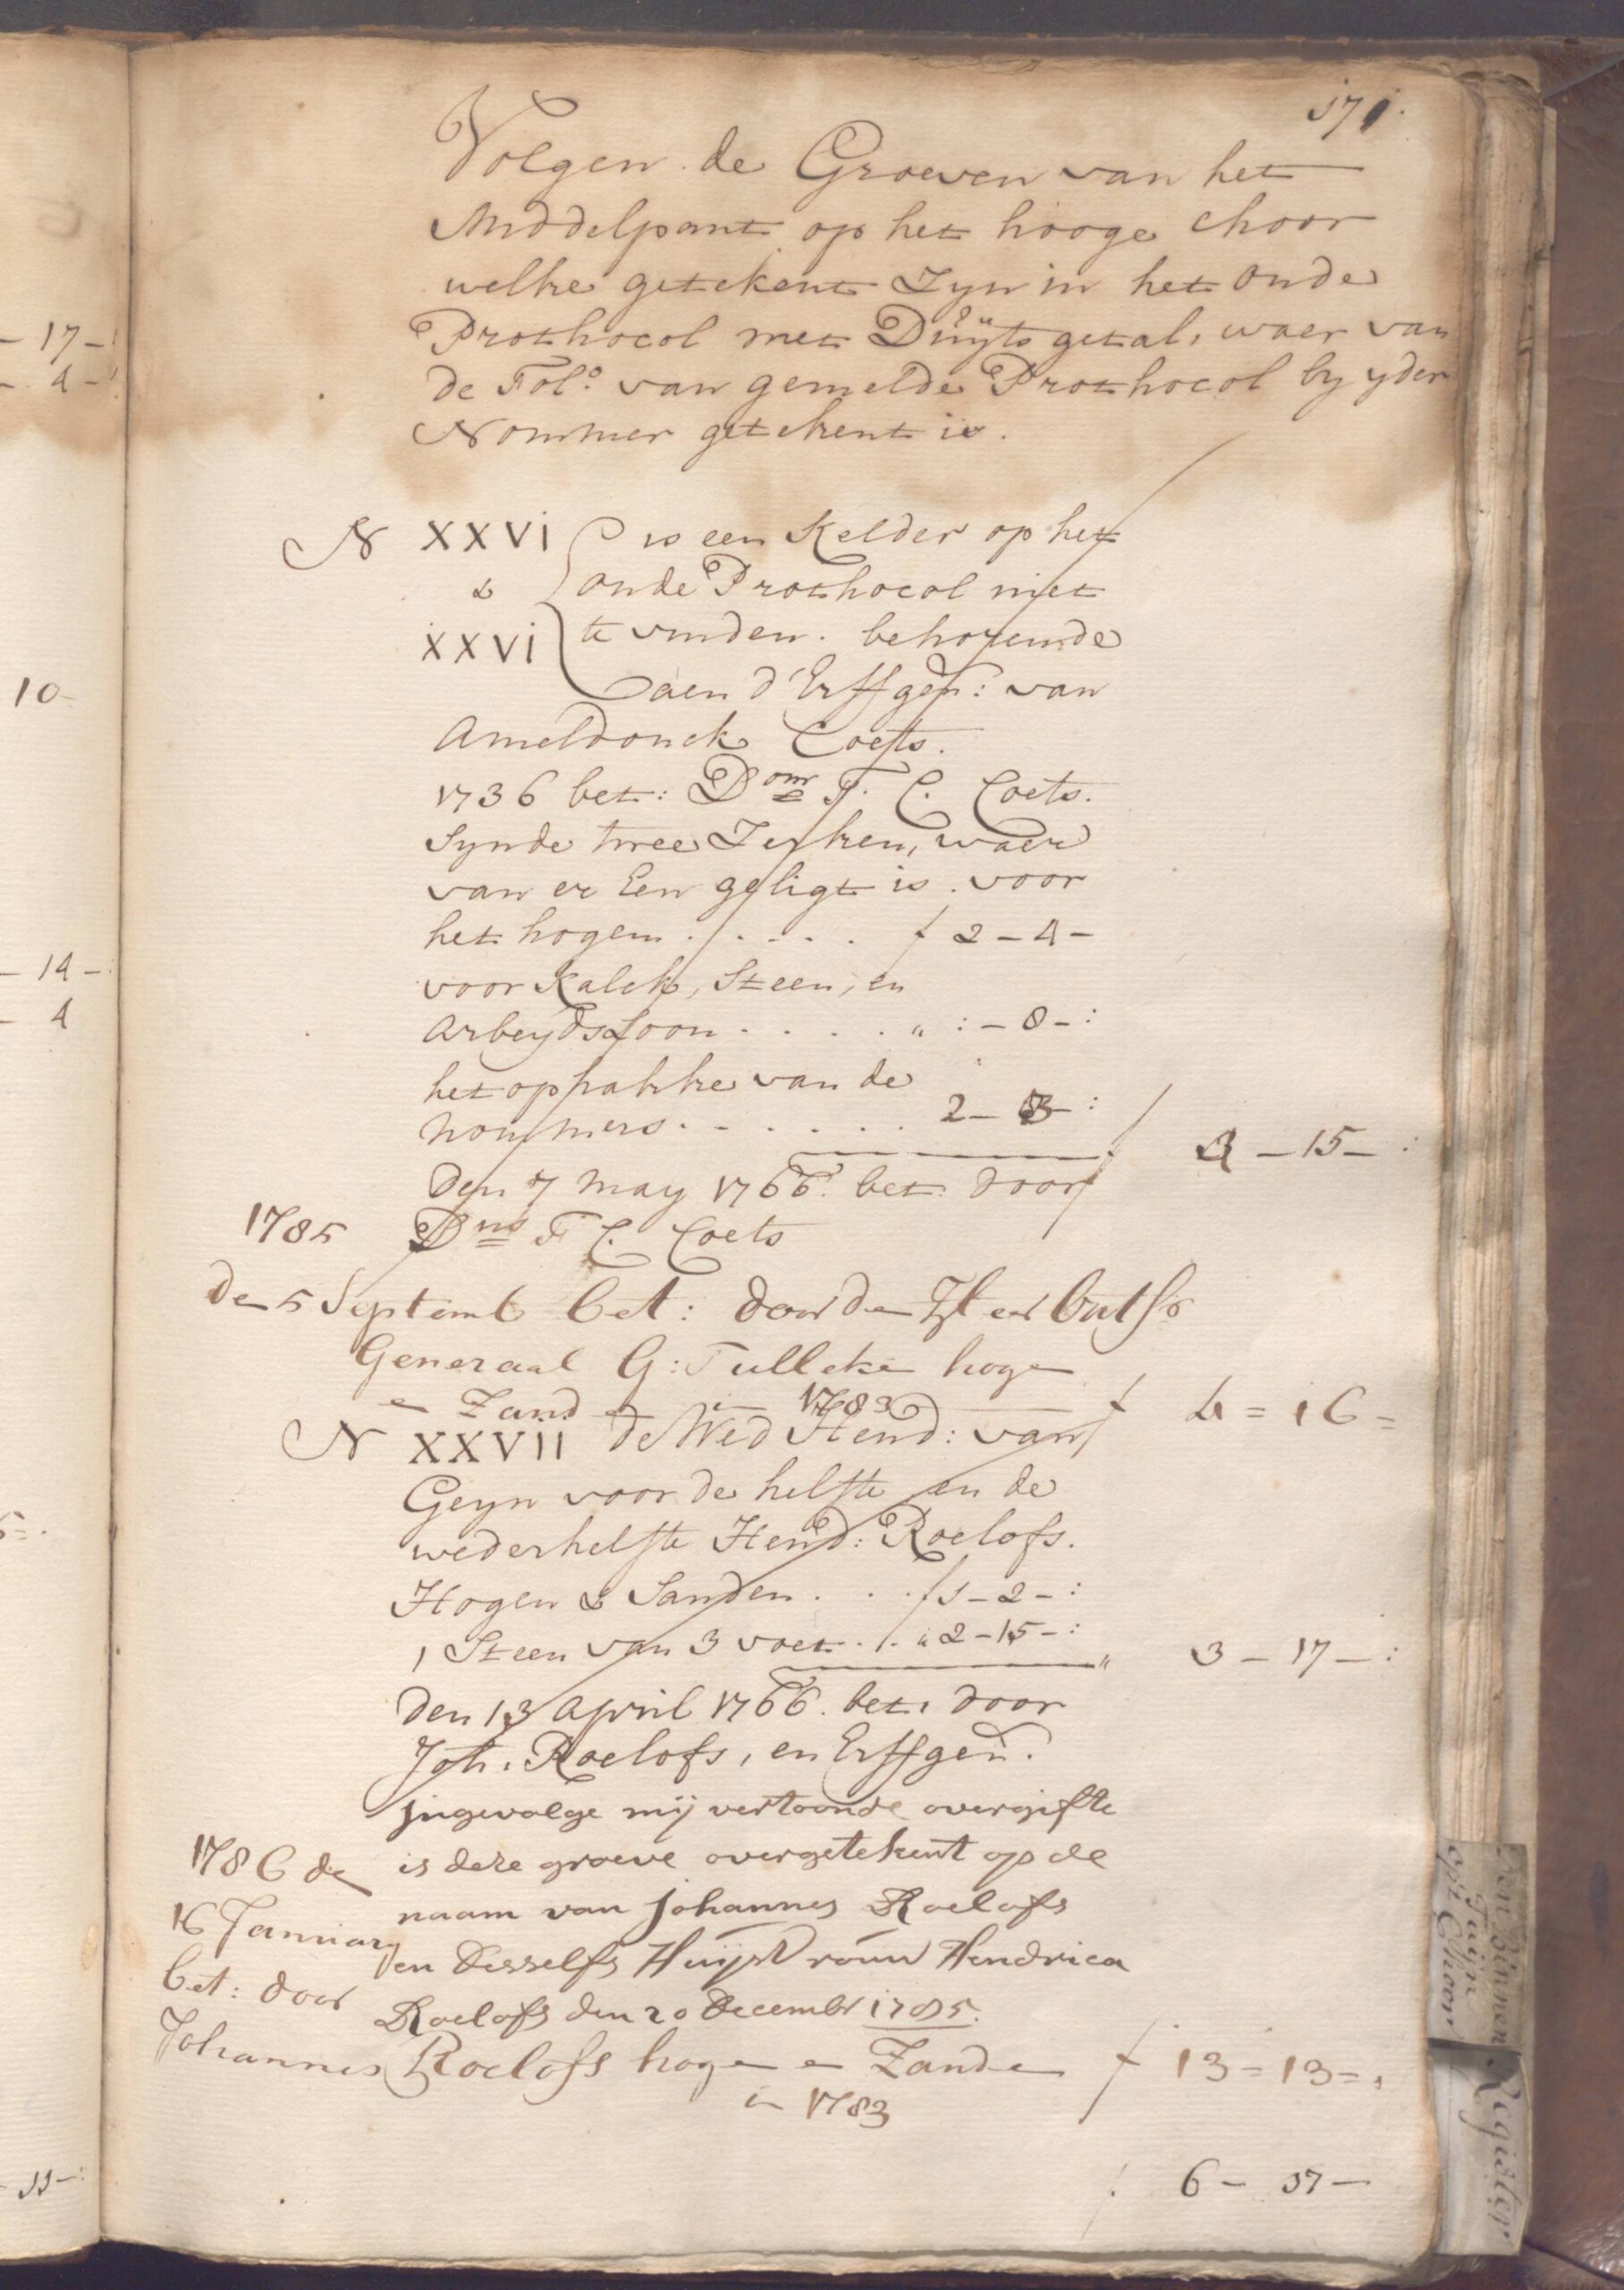 171.
Volgen de Groeven van het
Middelpant op het hooge Choor
welke getekent Zyn in het oude
Prothocol met Duÿts getal, waer van
de Fol:o van gemelde Prothocol by yder
Nommer getekent is.
N XXVI is een Kelder op het
& oude Prothocol niet
XXVI te vinden. behorende
aen d'Erffgen: van
Ameldonck Coets.
1736 bet: Dom F. C. Coets.
Synde twee Zerken, waer
van er Een geligt is. voor
het hogen . . . . . f 2-4-
voor Kalck, Steen, en
Arbeydsloon . . . . " :-8-:
het ophakke van de
Nommers . . . . . . 2-3-:
3-15-:
Den 7 May 1766. bet. door
1785 Dns F C. Coets
de 5 Septemb bet: door de Heer
Generaal G: Tulleke hoge
e Zand in 1783 f 4=16=
N XXVII de Wed Hend: van
Geyn voor de helfte en de
wederhelfte Hend: Roelofs.
Hogen & Sanden . . . f 1-2-:
1 Steen van 3 voet . . " 2-15-:
" 3-17-:
Den 13 April 1766. bet. door
Joh. Roelofs, en Erffgen.
jngevolge mij vertoonde overgifte
1786 de is deze groeve overgetekent op de
naam van Johannes Roelofs
16 Januarij en desselfs Huijsvrouw Hendrica
bet: door Roelofs den 20 Decembr 1785.
Johannes Roelofs hoge e Zande f 13=13=
in 1783
6-17-
17-
4-
10-
14-
4
11-:
Den Binnen
Tuijn
opt Choor
Register